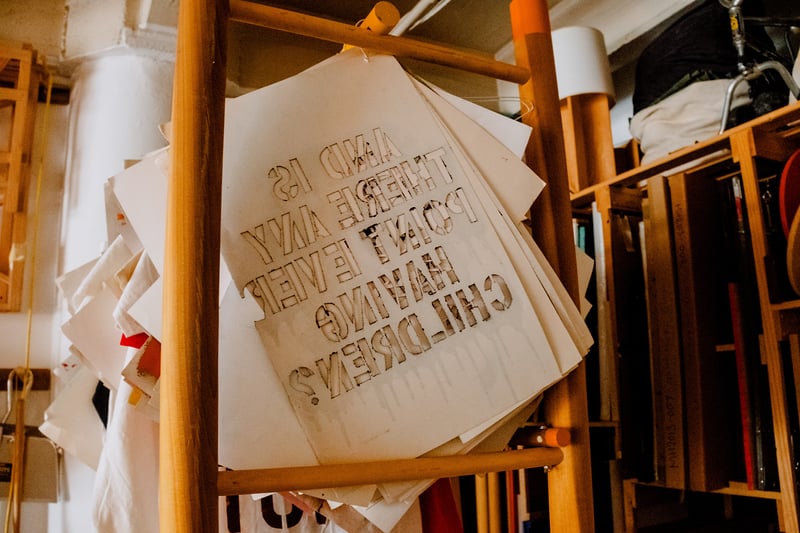 AND IS
THERE ANY
POINT EVER
HAVING
CHILDREN?